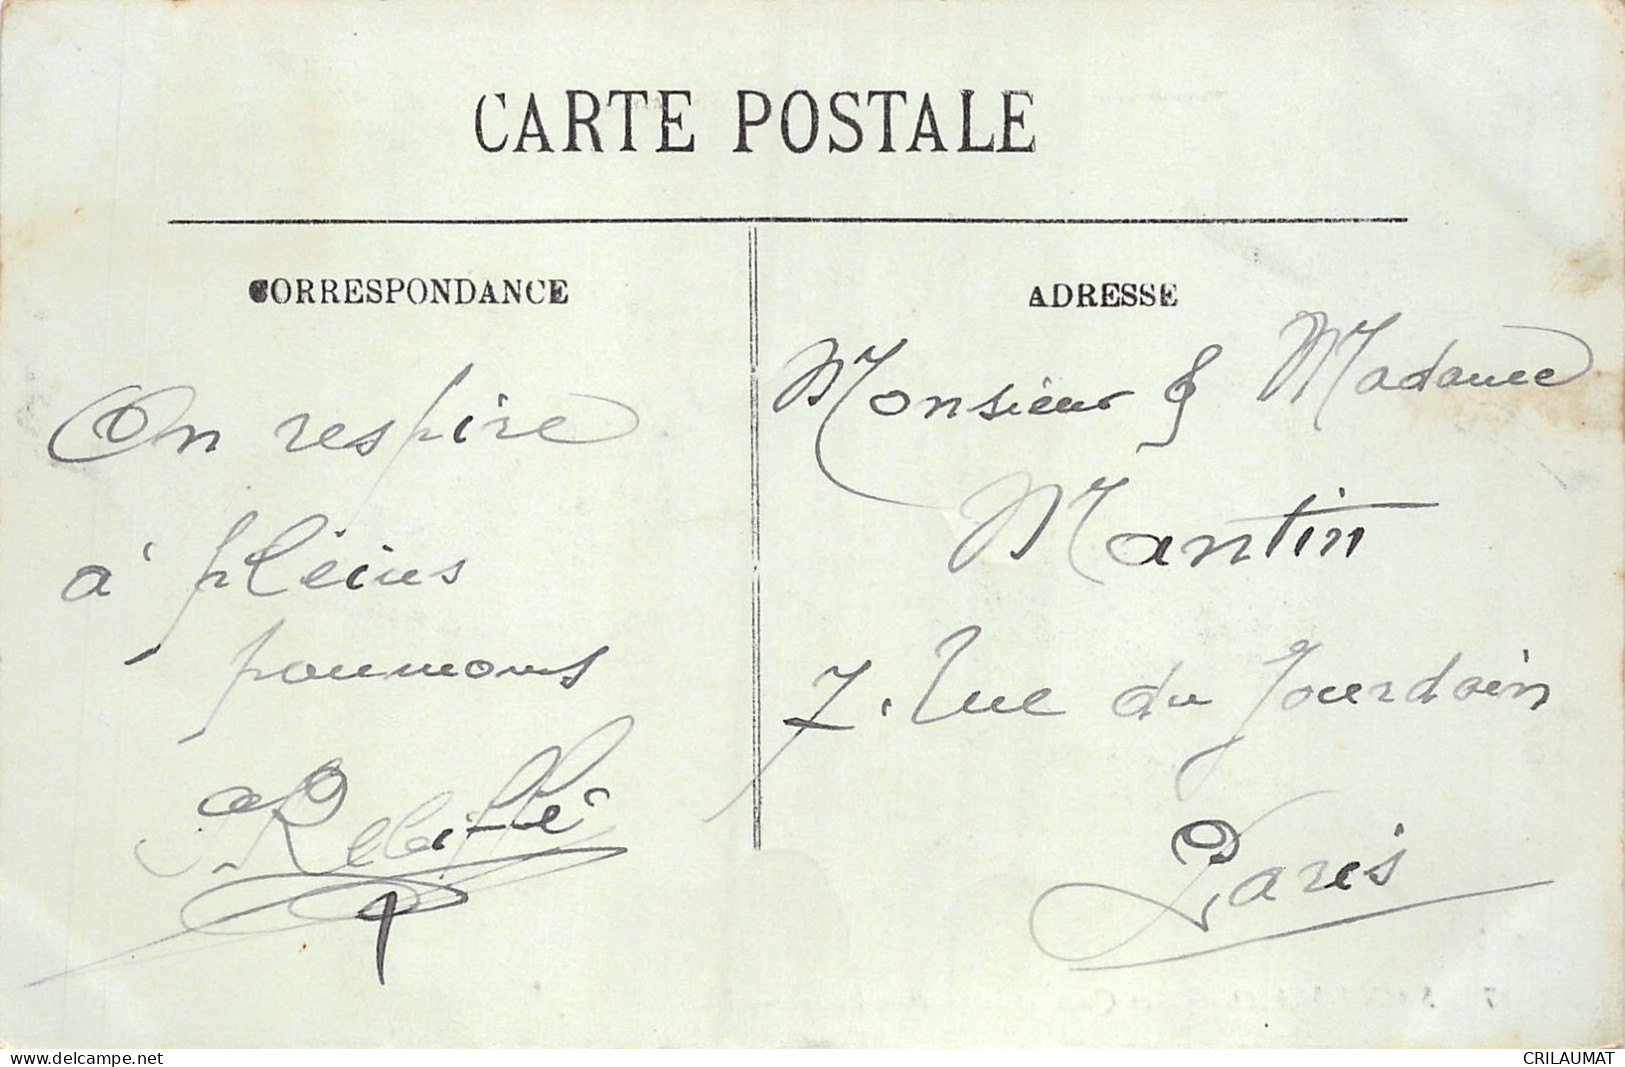 CARTE POSTALE
CORRESPONDANCE
On respire
à pleins
poumons
Rebiffé
ADRESSE
Monsieur & Madame
Martin
7. Rue du Jourdain
Paris
www.delcampe.net
CRILAUMAT